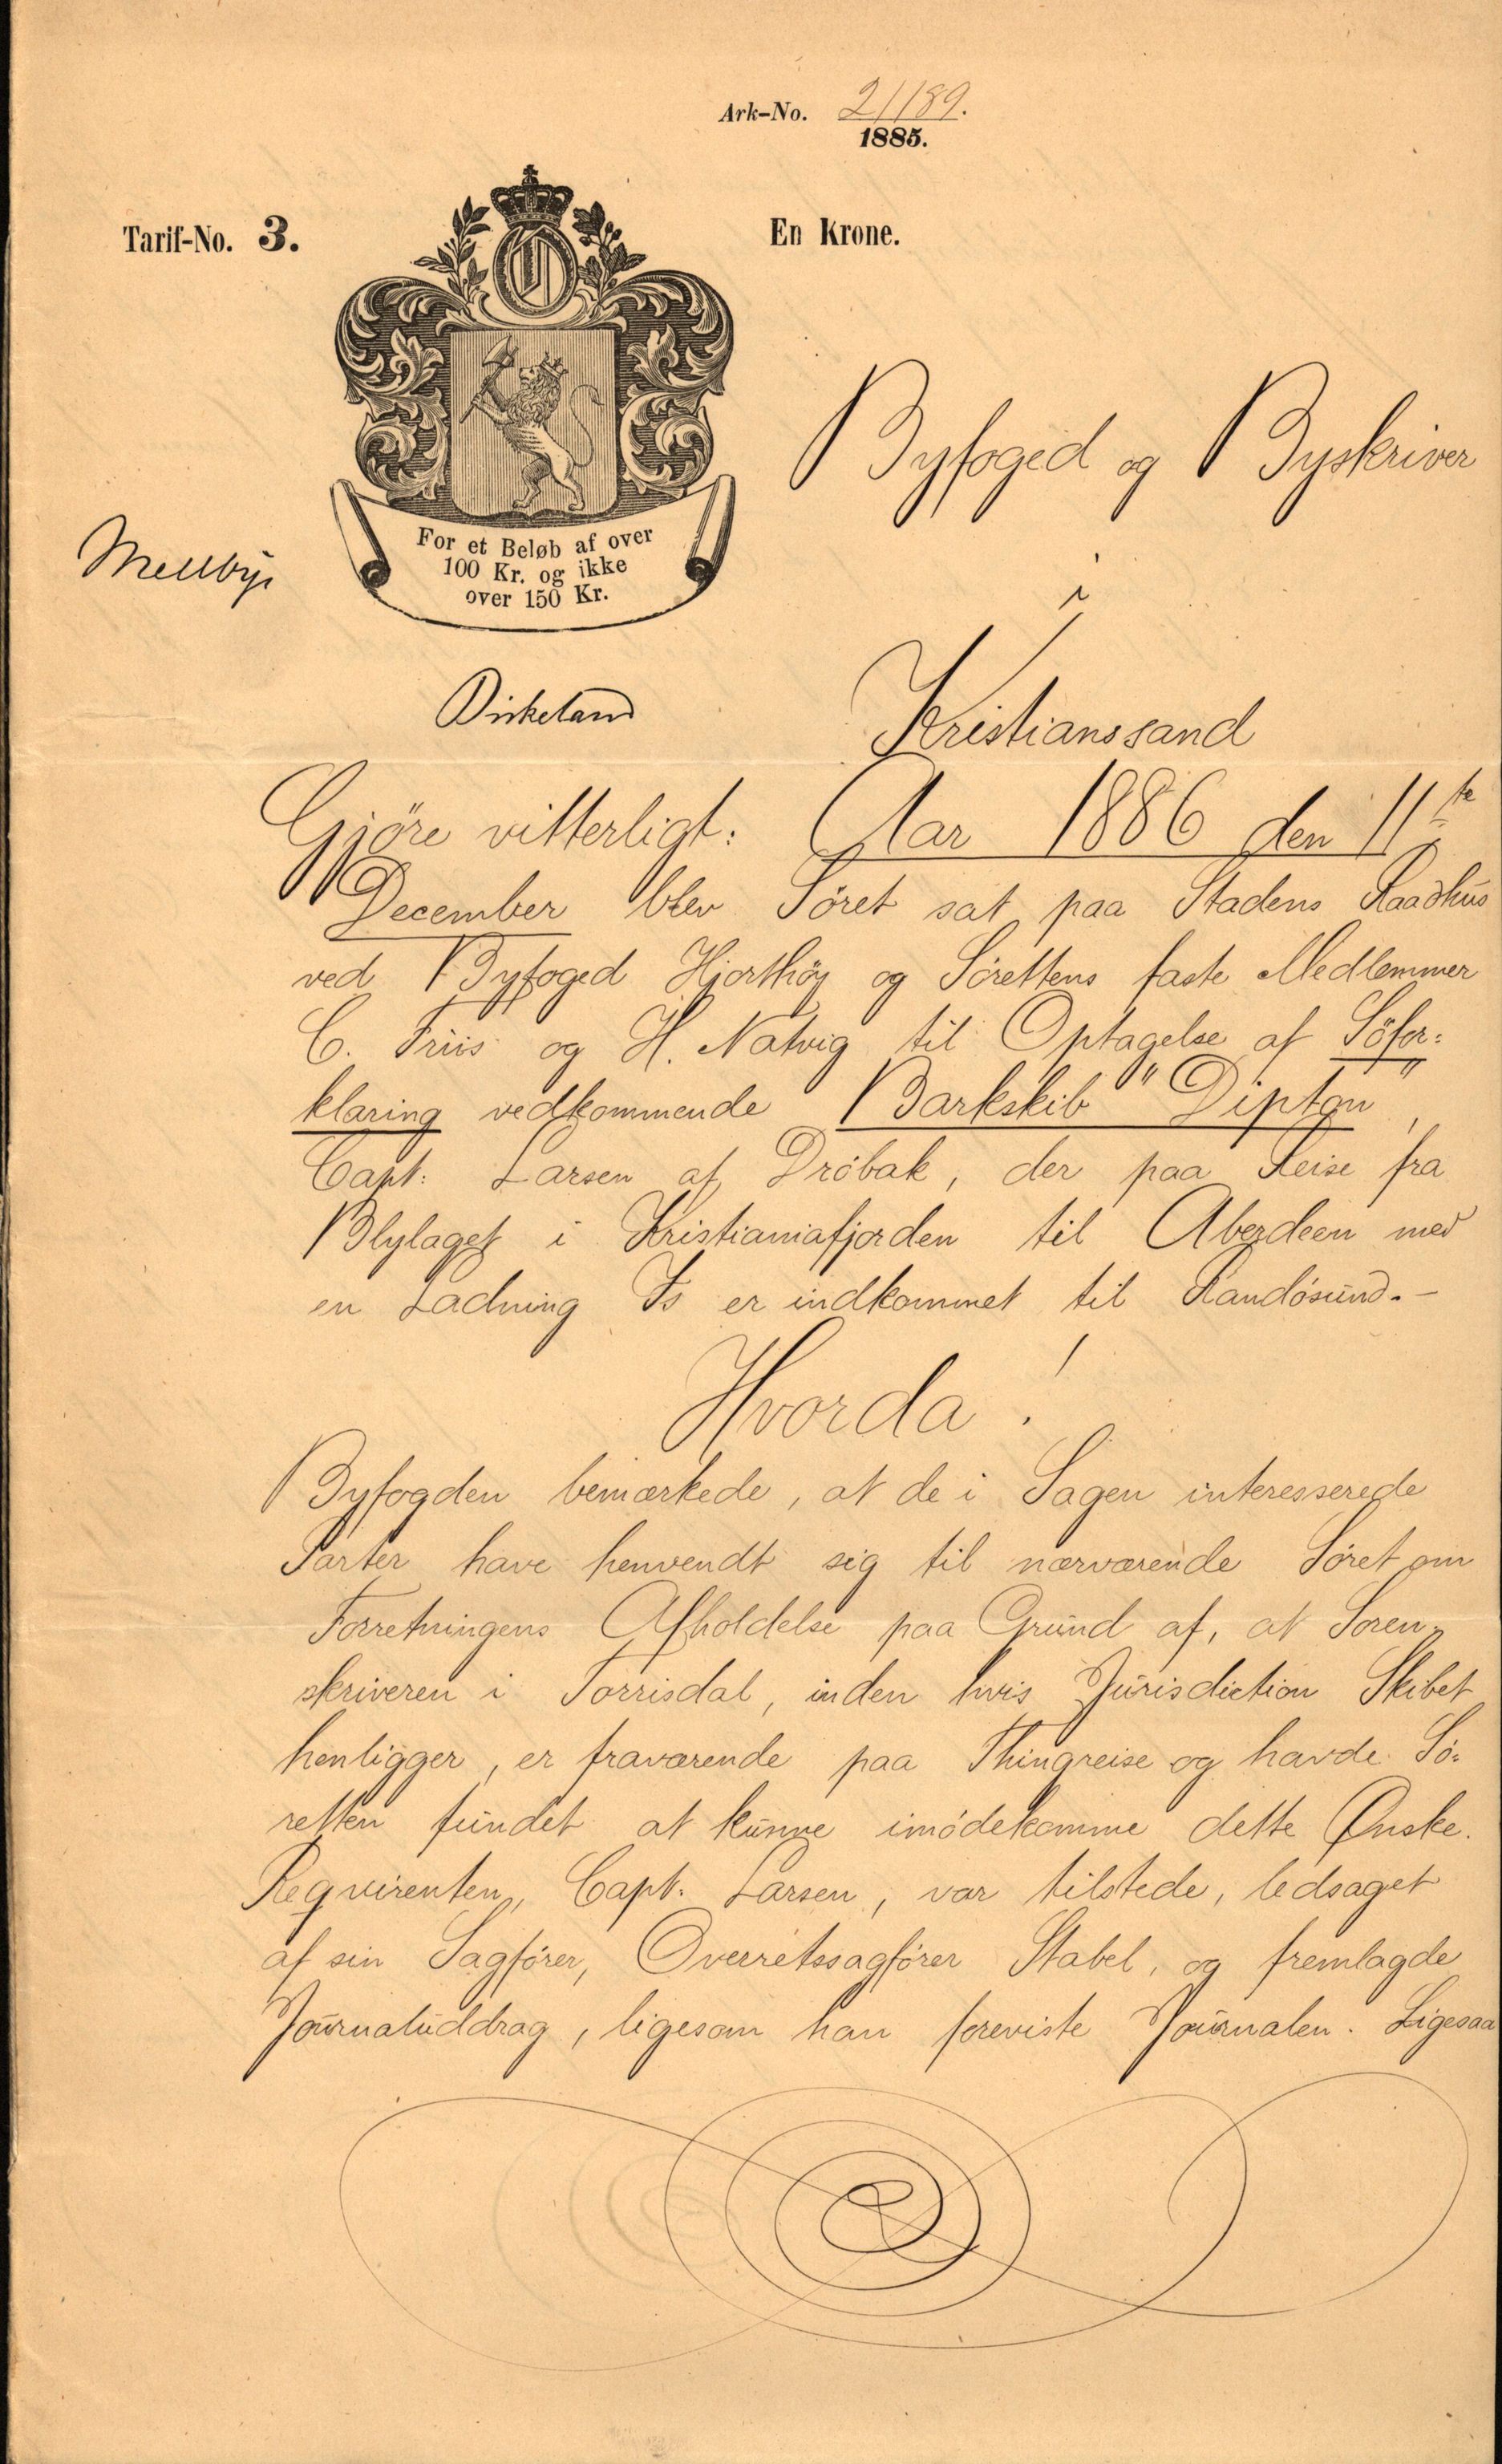 Ark-No. 21189.
1885.
Tarif-No. 3.
En Krone.
Byfoged og Byskriver
For et Beløb af over
100 Kr. og ikke
over 150 Kr.
Mellbye
i
Birkeland
Kristianssand
Gjöre vitterligt: Aar 1886 den 11te
December blev Söret sat paa Stadens Raadhus
ved Byfoged Hjorthöy og Sörettens faste Medlemmer
C. Friis og H. Natvig til Optagelse af Söfor=
klaring vedkommende Barkskib "Dipton",
Capt: Larsen af Dröbak, der paa Reise fra
Blylaget i Kristianiafjorden til Aberdeen med
en Ladning Is er indkommet til Randösund.-
Hvorda!
Byfogden bemærkede, at de i Sagen interesserede
Parter have henvendt sig til nærværende Söret om
Forretningens Afholdelse paa Grund af, at Soren-
skriveren i Torrisdal, inden hvis Jurisdiction Skibet
henligger, er fraværende paa Thingreise og havde Sö=
retten fundet at kunne imödekomme dette Ønske.
Reqvirenten, Capt. Larsen, var tilstede, ledsaget
af sin Sagförer, Overretssagförer Stabel, og fremlagde
Journaluddrag, ligesom han foreviste Journalen. Ligesaa